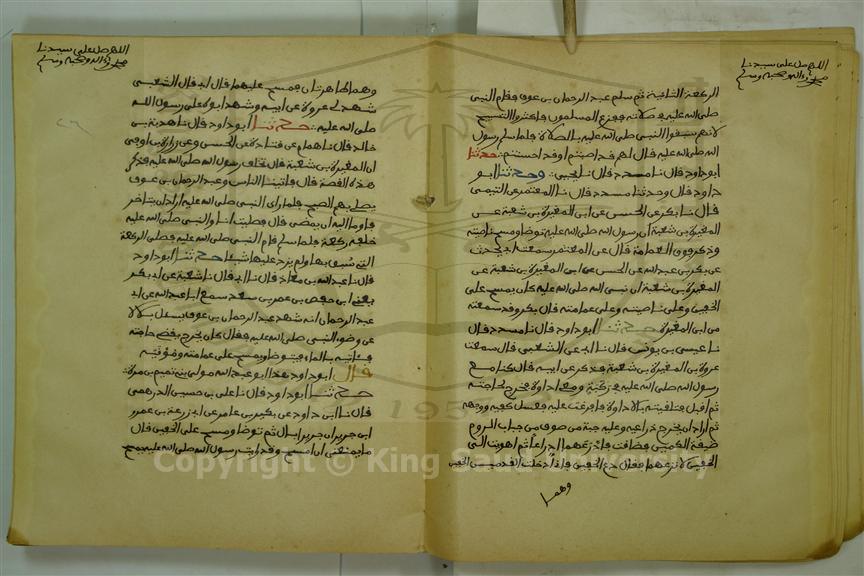 اللهم صل على سيدنا
محمد وآله وصحبه وسلم
الركعة الثانية ثم سلم عبد الرحمان بن عوف فقام النبي
صلى الله عليه في صلاته ففزع المسلمون فاكثروا التسبيح
لانهم سبقوا النبي صلى الله عليه بالصلاة فلما سلم رسول
الله صلى الله عليه قال لهم قد اصبتم او قد احسنتم حدثنا
ابو داود قال نا مسدد قال نا يحيى وحدثنا ابو
داود قال وحدثنا مسدد قال نا المعتمر عن التيمي
قال نا بكر عن الحسن عن ابن المغيرة بن شعبة عن
المغيرة بن شعبة ان رسول الله صلى الله عليه توضا ومسح ناصيته
وذكر فوق العمامة قال عن المعتمر سمعت ابي يحدث
عن بكر بن عبد الله عن الحسن عن ابن المغيرة بن شعبة عن
المغيرة بن شعبة ان نبي الله صلى الله عليه كان يمسح على
الخفين وعلى ناصيته وعلى عمامته قال بكر وقد سمعته
من ابن المغيرة حدثنا ابو داود قال نا مسدد قال
نا عيسى بن يونس قال نا ابي عن الشعبي قال سمعت
عروة بن المغيرة بن شعبة يذكر عن ابيه قال كنا مع
رسول الله صلى الله عليه في ركبة ومعي اداوة فخرج لحاجته
ثم اقبل فتلقيته بالاداوة فافرغت عليه فغسل كفيه ووجهه
ثم اراد ان يخرج ذراعيه وعليه جبة من صوف من جباب الروم
ضيقة الكمين فضاقت فادرعهما ادراعا ثم اهويت الى
الخفين لانزعهما فقال دع الخفين فاني ادخلت القدمين الخفين
وهما
اللهم صل على سيدنا
محمد وآله وصحبه وسلم
وهما طاهرتان فمسح عليهما قال ابي قال الشعبي
شهد لي عروة عن ابيه وشهد ابوه على رسول الله
صلى الله عليه حدثنا ابو داود قال نا هدبة بن
خالد قال نا همام عن قتادة عن الحسن وعن زرارة بن اوفى
ان المغيرة بن شعبة قال تخلف رسول الله صلى الله عليه فذكر
هذه القصة قال فاتينا الناس وعبد الرحمان بن عوف
يصلي بهم الصبح فلما راى النبي صلى الله عليه اراد ان يتاخر
فاوما اليه ان يمضي قال فصليت انا والنبي صلى الله عليه
خلفه ركعة فلما سلم قام النبي صلى الله عليه فصلى الركعة
التي سبق بها ولم يزد عليها شيئا حدثنا ابو داود
قال نا عبيد الله بن معاذ قال نا ابي قال نا شعبة عن ابي بكر
يعني ابن حفص بن عمر بن سعد سمع ابا عبد الله عن ابي
عبد الرحمان انه شهد عبد الرحمان بن عوف يسئل بلالا
عن وضوء النبي صلى الله عليه فقال كان يخرج يقضي حاجته
فاتيه بالماء فيتوضا ويمسح على عمامته وموقيه
قال ابو داود هذا ابو عبد الله مولى بني تميم بن مرة
حدثنا ابو داود قال نا علي بن حسين الدرهمي
قال نا ابن داود عن بكير بن عامر عن ابي زرعة بن عمرو
ابن جرير ان جريرا بال ثم توضا ومسح على الخفين قال
ما يمنعني ان امسح وقد رايت رسول الله صلى الله عليه يمسح
Copyright © King Saud University
1957